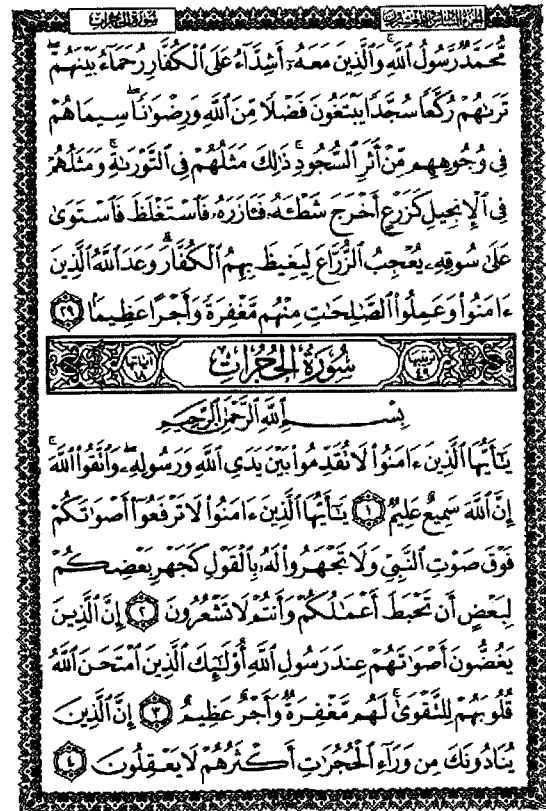 سُورَةُ الحُجُرَاتِ الجزء السادس والعشرون
مُّحَمَّدٌ رَّسُولُ ٱللَّهِ ۚ وَٱلَّذِينَ مَعَهُۥٓ أَشِدَّآءُ عَلَى ٱلْكُفَّارِ رُحَمَآءُ بَيْنَهُمْ ۖ
تَرَىٰهُمْ رُكَّعًا سُجَّدًا يَبْتَغُونَ فَضْلًا مِّنَ ٱللَّهِ وَرِضْوَٰنًا ۖ سِيمَاهُمْ
فِى وُجُوهِهِم مِّنْ أَثَرِ ٱلسُّجُودِ ۚ ذَٰلِكَ مَثَلُهُمْ فِى ٱلتَّوْرَىٰةِ ۚ وَمَثَلُهُمْ
فِى ٱلْإِنجِيلِ كَزَرْعٍ أَخْرَجَ شَطْـَٔهُۥ فَـَٔازَرَهُۥ فَٱسْتَغْلَظَ فَٱسْتَوَىٰ
عَلَىٰ سُوقِهِۦ يُعْجِبُ ٱلزُّرَّاعَ لِيَغِيظَ بِهِمُ ٱلْكُفَّارَ ۗ وَعَدَ ٱللَّهُ ٱلَّذِينَ
ءَامَنُوا۟ وَعَمِلُوا۟ ٱلصَّٰلِحَٰتِ مِنْهُم مَّغْفِرَةً وَأَجْرًا عَظِيمًۢا ٢٩
ترتيبها ٤٩ سُورَةُ الحُجُرَاتِ آياتها ١٨
بِسْمِ ٱللَّهِ ٱلرَّحْمَٰنِ ٱلرَّحِيمِ
يَٰٓأَيُّهَا ٱلَّذِينَ ءَامَنُوا۟ لَا تُقَدِّمُوا۟ بَيْنَ يَدَىِ ٱللَّهِ وَرَسُولِهِۦ ۖ وَٱتَّقُوا۟ ٱللَّهَ ۚ
إِنَّ ٱللَّهَ سَمِيعٌ عَلِيمٌ ١ يَٰٓأَيُّهَا ٱلَّذِينَ ءَامَنُوا۟ لَا تَرْفَعُوٓا۟ أَصْوَٰتَكُمْ
فَوْقَ صَوْتِ ٱلنَّبِىِّ وَلَا تَجْهَرُوا۟ لَهُۥ بِٱلْقَوْلِ كَجَهْرِ بَعْضِكُمْ
لِبَعْضٍ أَن تَحْبَطَ أَعْمَٰلُكُمْ وَأَنتُمْ لَا تَشْعُرُونَ ٢ إِنَّ ٱلَّذِينَ
يَغُضُّونَ أَصْوَٰتَهُمْ عِندَ رَسُولِ ٱللَّهِ أُو۟لَٰٓئِكَ ٱلَّذِينَ ٱمْتَحَنَ ٱللَّهُ
قُلُوبَهُمْ لِلتَّقْوَىٰ ۚ لَهُم مَّغْفِرَةٌ وَأَجْرٌ عَظِيمٌ ٣ إِنَّ ٱلَّذِينَ
يُنَادُونَكَ مِن وَرَآءِ ٱلْحُجُرَٰتِ أَكْثَرُهُمْ لَا يَعْقِلُونَ ٤